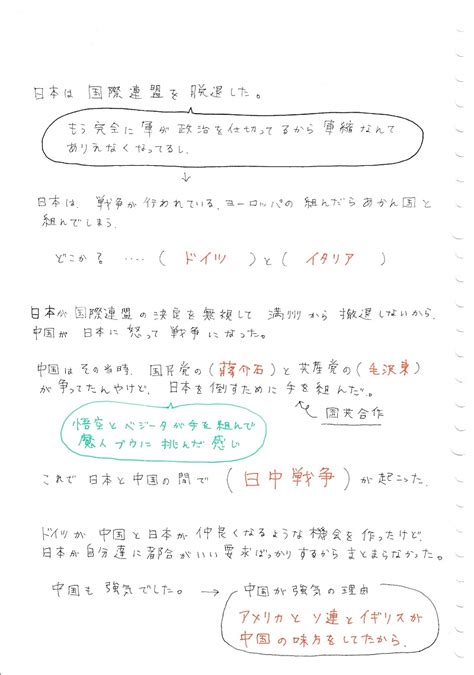 日本は 国際連盟を 脱退した。
もう完全に軍が政治を仕切ってるから軍縮なんて
ありえなくなってるし。
↓
日本は、戦争が行われている、ヨーロッパの 組んだらあかん国と
組んでしまう。
どこかる ‥‥ ( ドイツ ) と ( イタリア )
日本が 国際連盟の決定を無視して 満州から 撤退しないから、
中国が 日本に 怒って 戦争に なった。
中国はその当時、国民党の(蔣介石)と共産党の(毛沢東)
が争ってたんやけど、日本を倒すために手を組んだ。
国共合作
悟空とベジータが手を組んで
魔人ブウに 挑んだ 感じ
これで 日本と中国の間で ( 日中戦争 ) が起こった。
ドイツが 中国と日本が仲良くなるような機会を作ったけど、
日本が自分達に都合がいい要求ばっかりするからまとまらなかった。
中国も 強気でした。 → 中国が強気の理由
アメリカとソ連とイギリスが
中国の味方をしてたから。